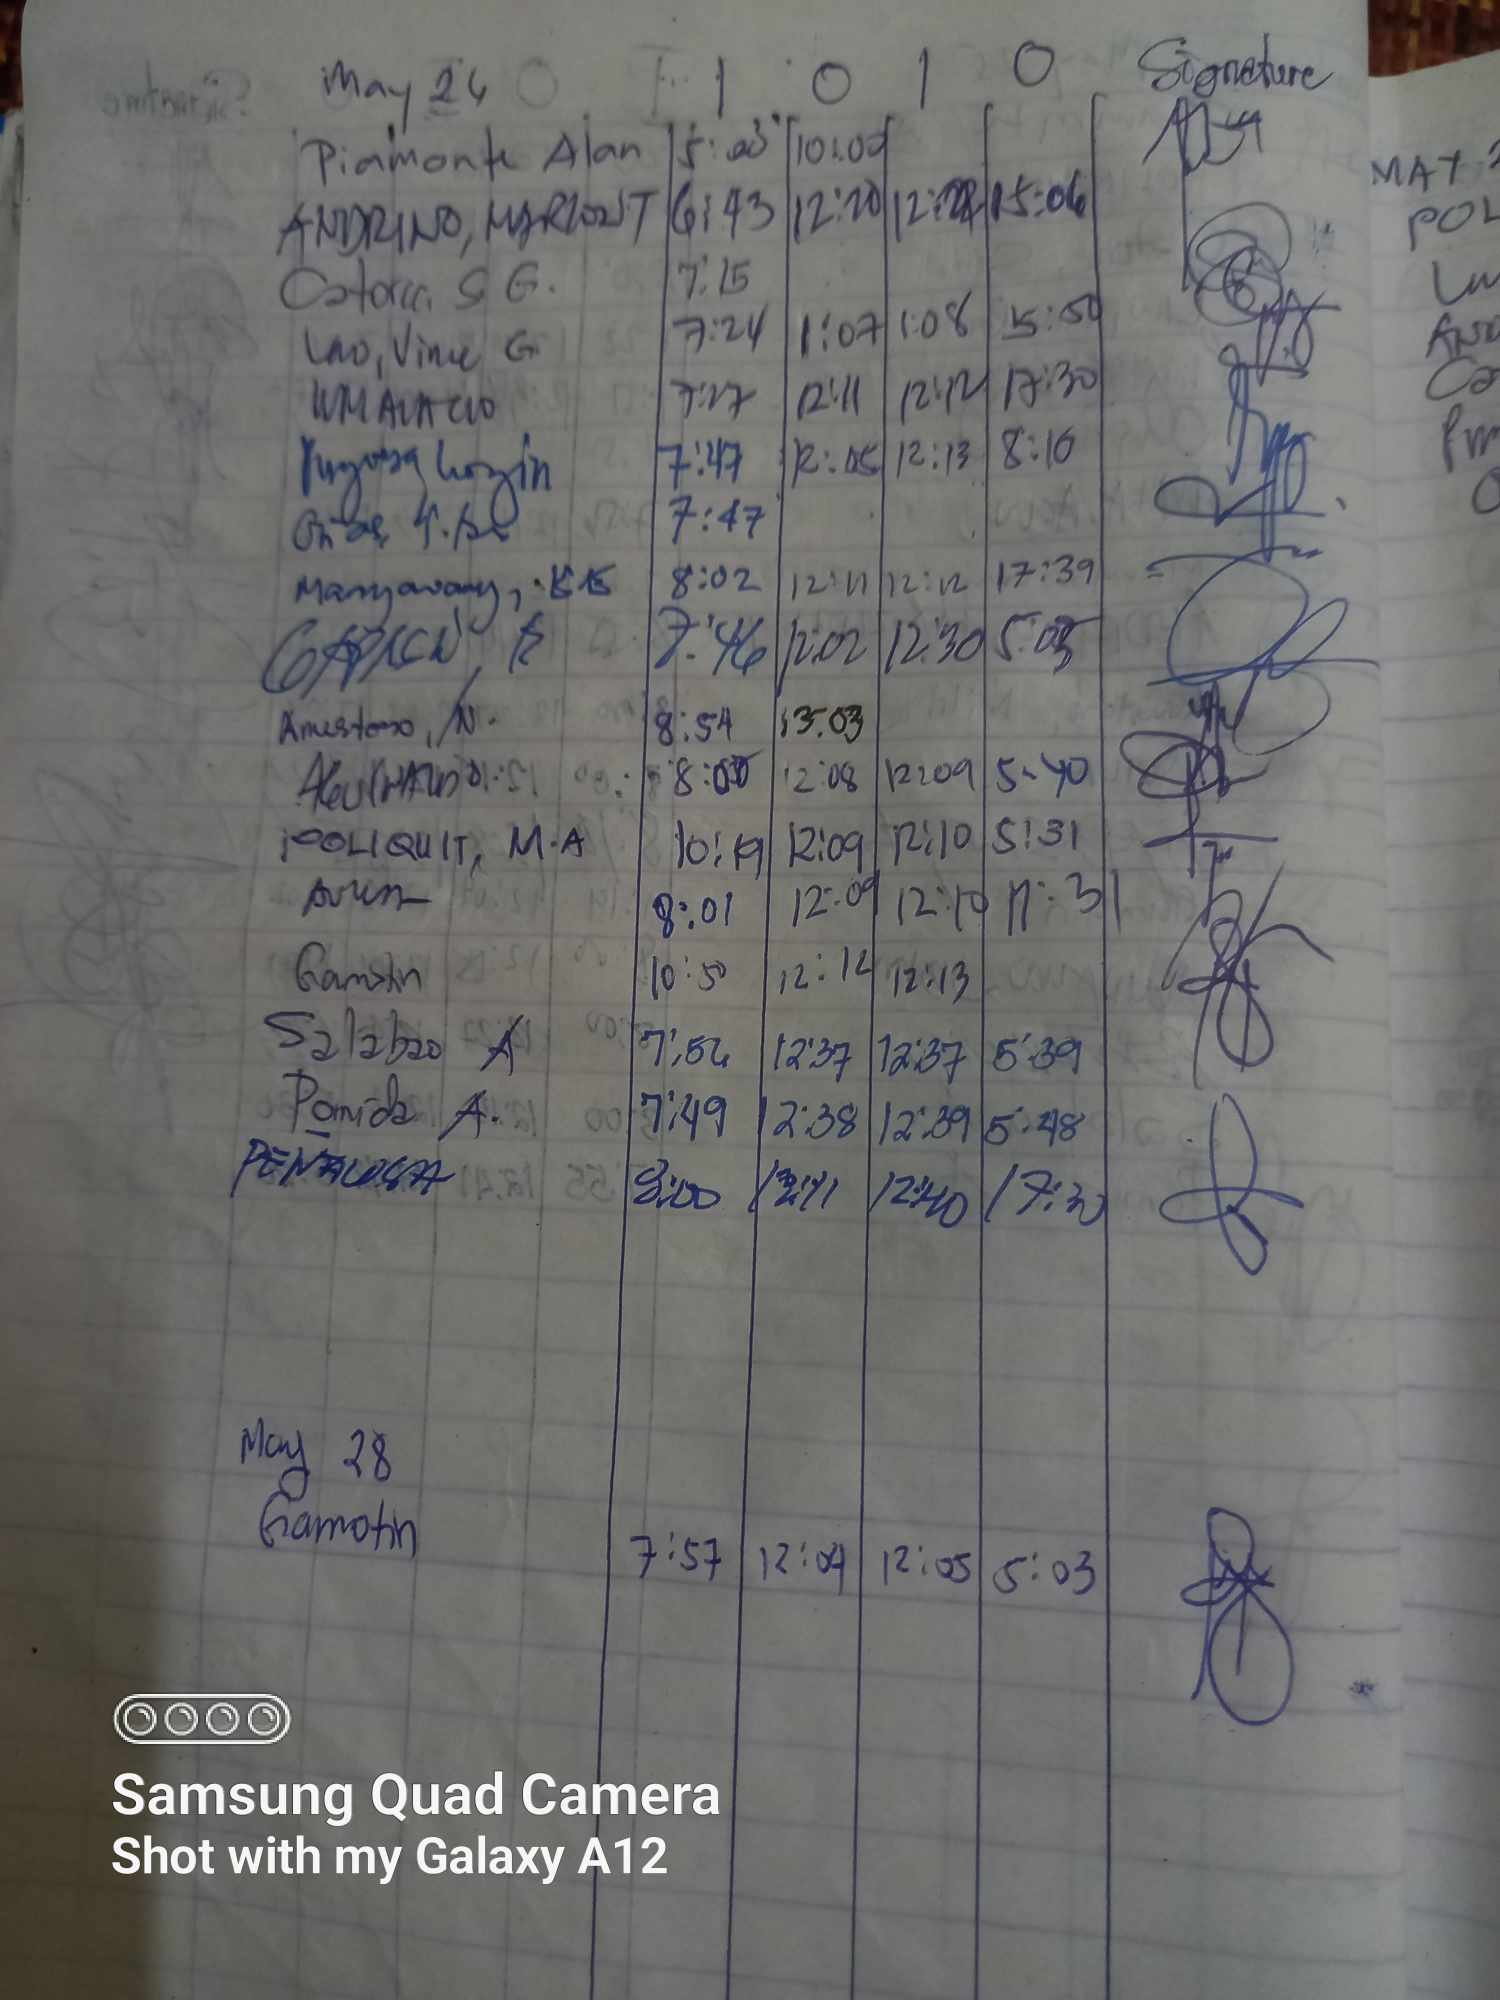 May 24 I O I O Signature
Piamonte Alan 5:03 10:00
ANDRINO, MARLON T 6:43 12:20 15:06
S G. 7:15
Lao, Vince G. 7:24 1:07 1:08 15:50
7:27 12:11 12:12 17:30
7:47 12:05 12:13 8:16
7:47
8:02 12:11 12:12 17:39
7:46 12:02 12:30 5:05
N. 8:54 13:03
8:00 12:08 12:09 5:40
POLIQUIT, M.A 10:19 12:09 12:10 5:31
8:01 12:09 12:10 17:31
Gamotin 10:50 12:12 12:13
Salabao A 7:56 12:37 12:37 5:39
Pamida A. 7:49 12:38 12:39 5:48
PENALOSA 8:00 12:11 12:40 17:30
May 28
Gamotin 7:57 12:04 12:05 5:03
MAY
POL
Samsung Quad Camera
Shot with my Galaxy A12